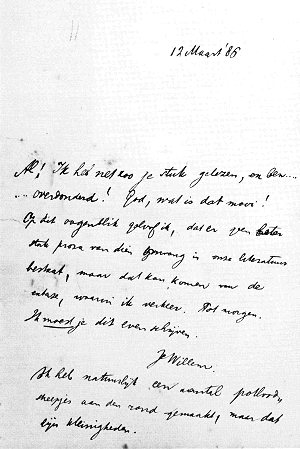 12 Maart '86
Ah! Ik heb net zoo je stuk gelezen, en ben ...
... overdonderd! God, wat is dat mooi!
Op dit oogenblik geloof ik, dat er geen beter
stuk proza van dien omvang in onze literatuur
bestaat, maar dat kan komen van de
extase, waarin ik verkeer. Tot morgen.
Ik moest je dit even schrijven.
Je Willem.
Ik heb natuurlijk een aantal potlood-
streepjes aan den rand gemaakt, maar dat
zijn kleinigheden.